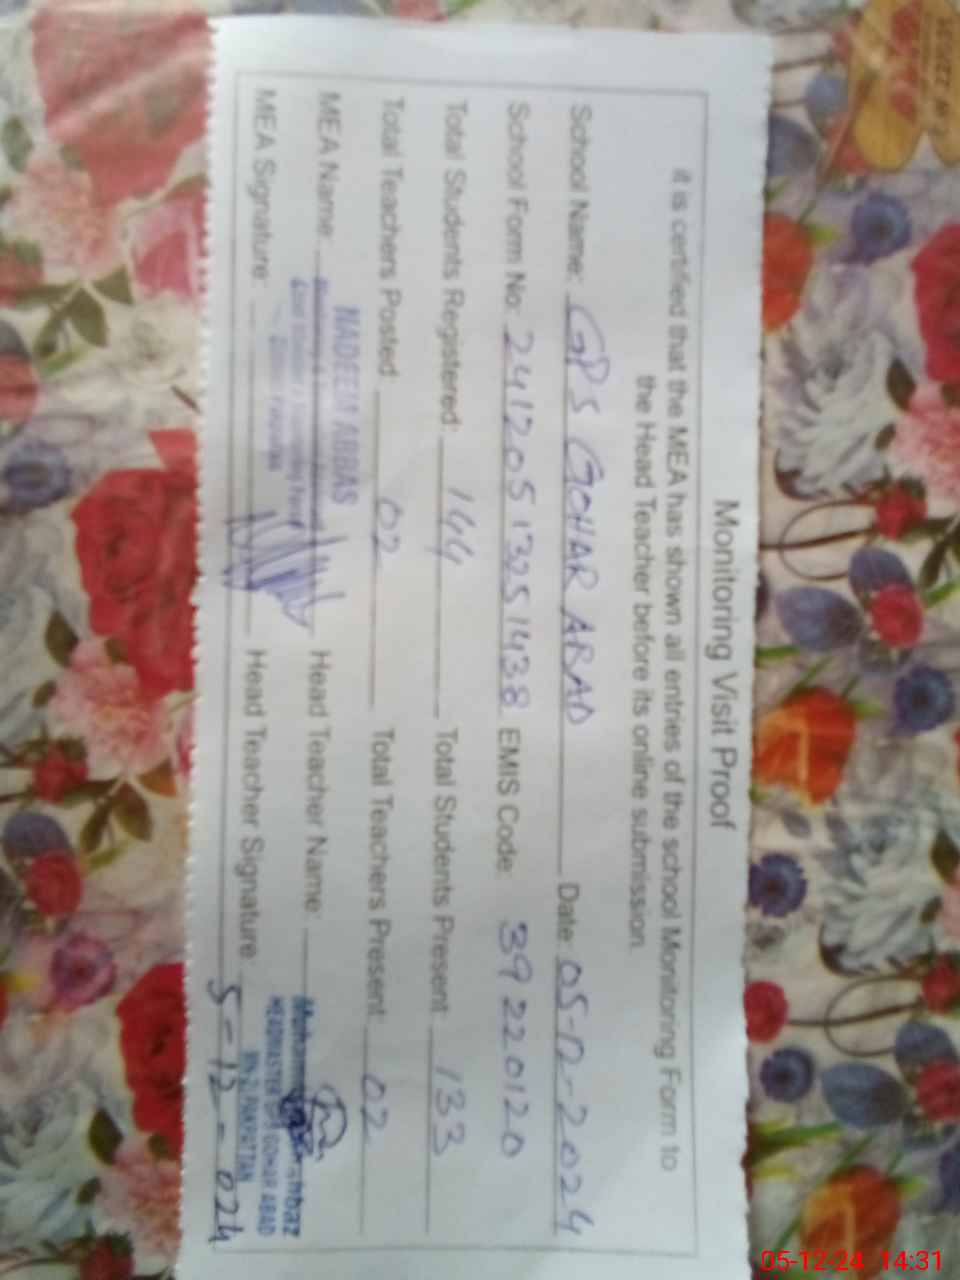 Monitoring Visit Proof
it is certified that the MEA has shown all entries of the school Monitoring Form to
the Head Teacher before its online submission.
School Name: GPS GOHAR ABAD Date: 05-12-2024
School Form No: 24120513251438 EMIS Code: 39220120
Total Students Registered: 144 Total Students Present: 133
Total Teachers Posted: 02 Total Teachers Present: 02
NADEEM ABBAS
MEA Name: Head Teacher Name:
HEADMASTER GPS GOHAR ABAD
PAKPATTAN
MEA Signature: Head Teacher Signature:
5-12-024
05-12-24 14:31